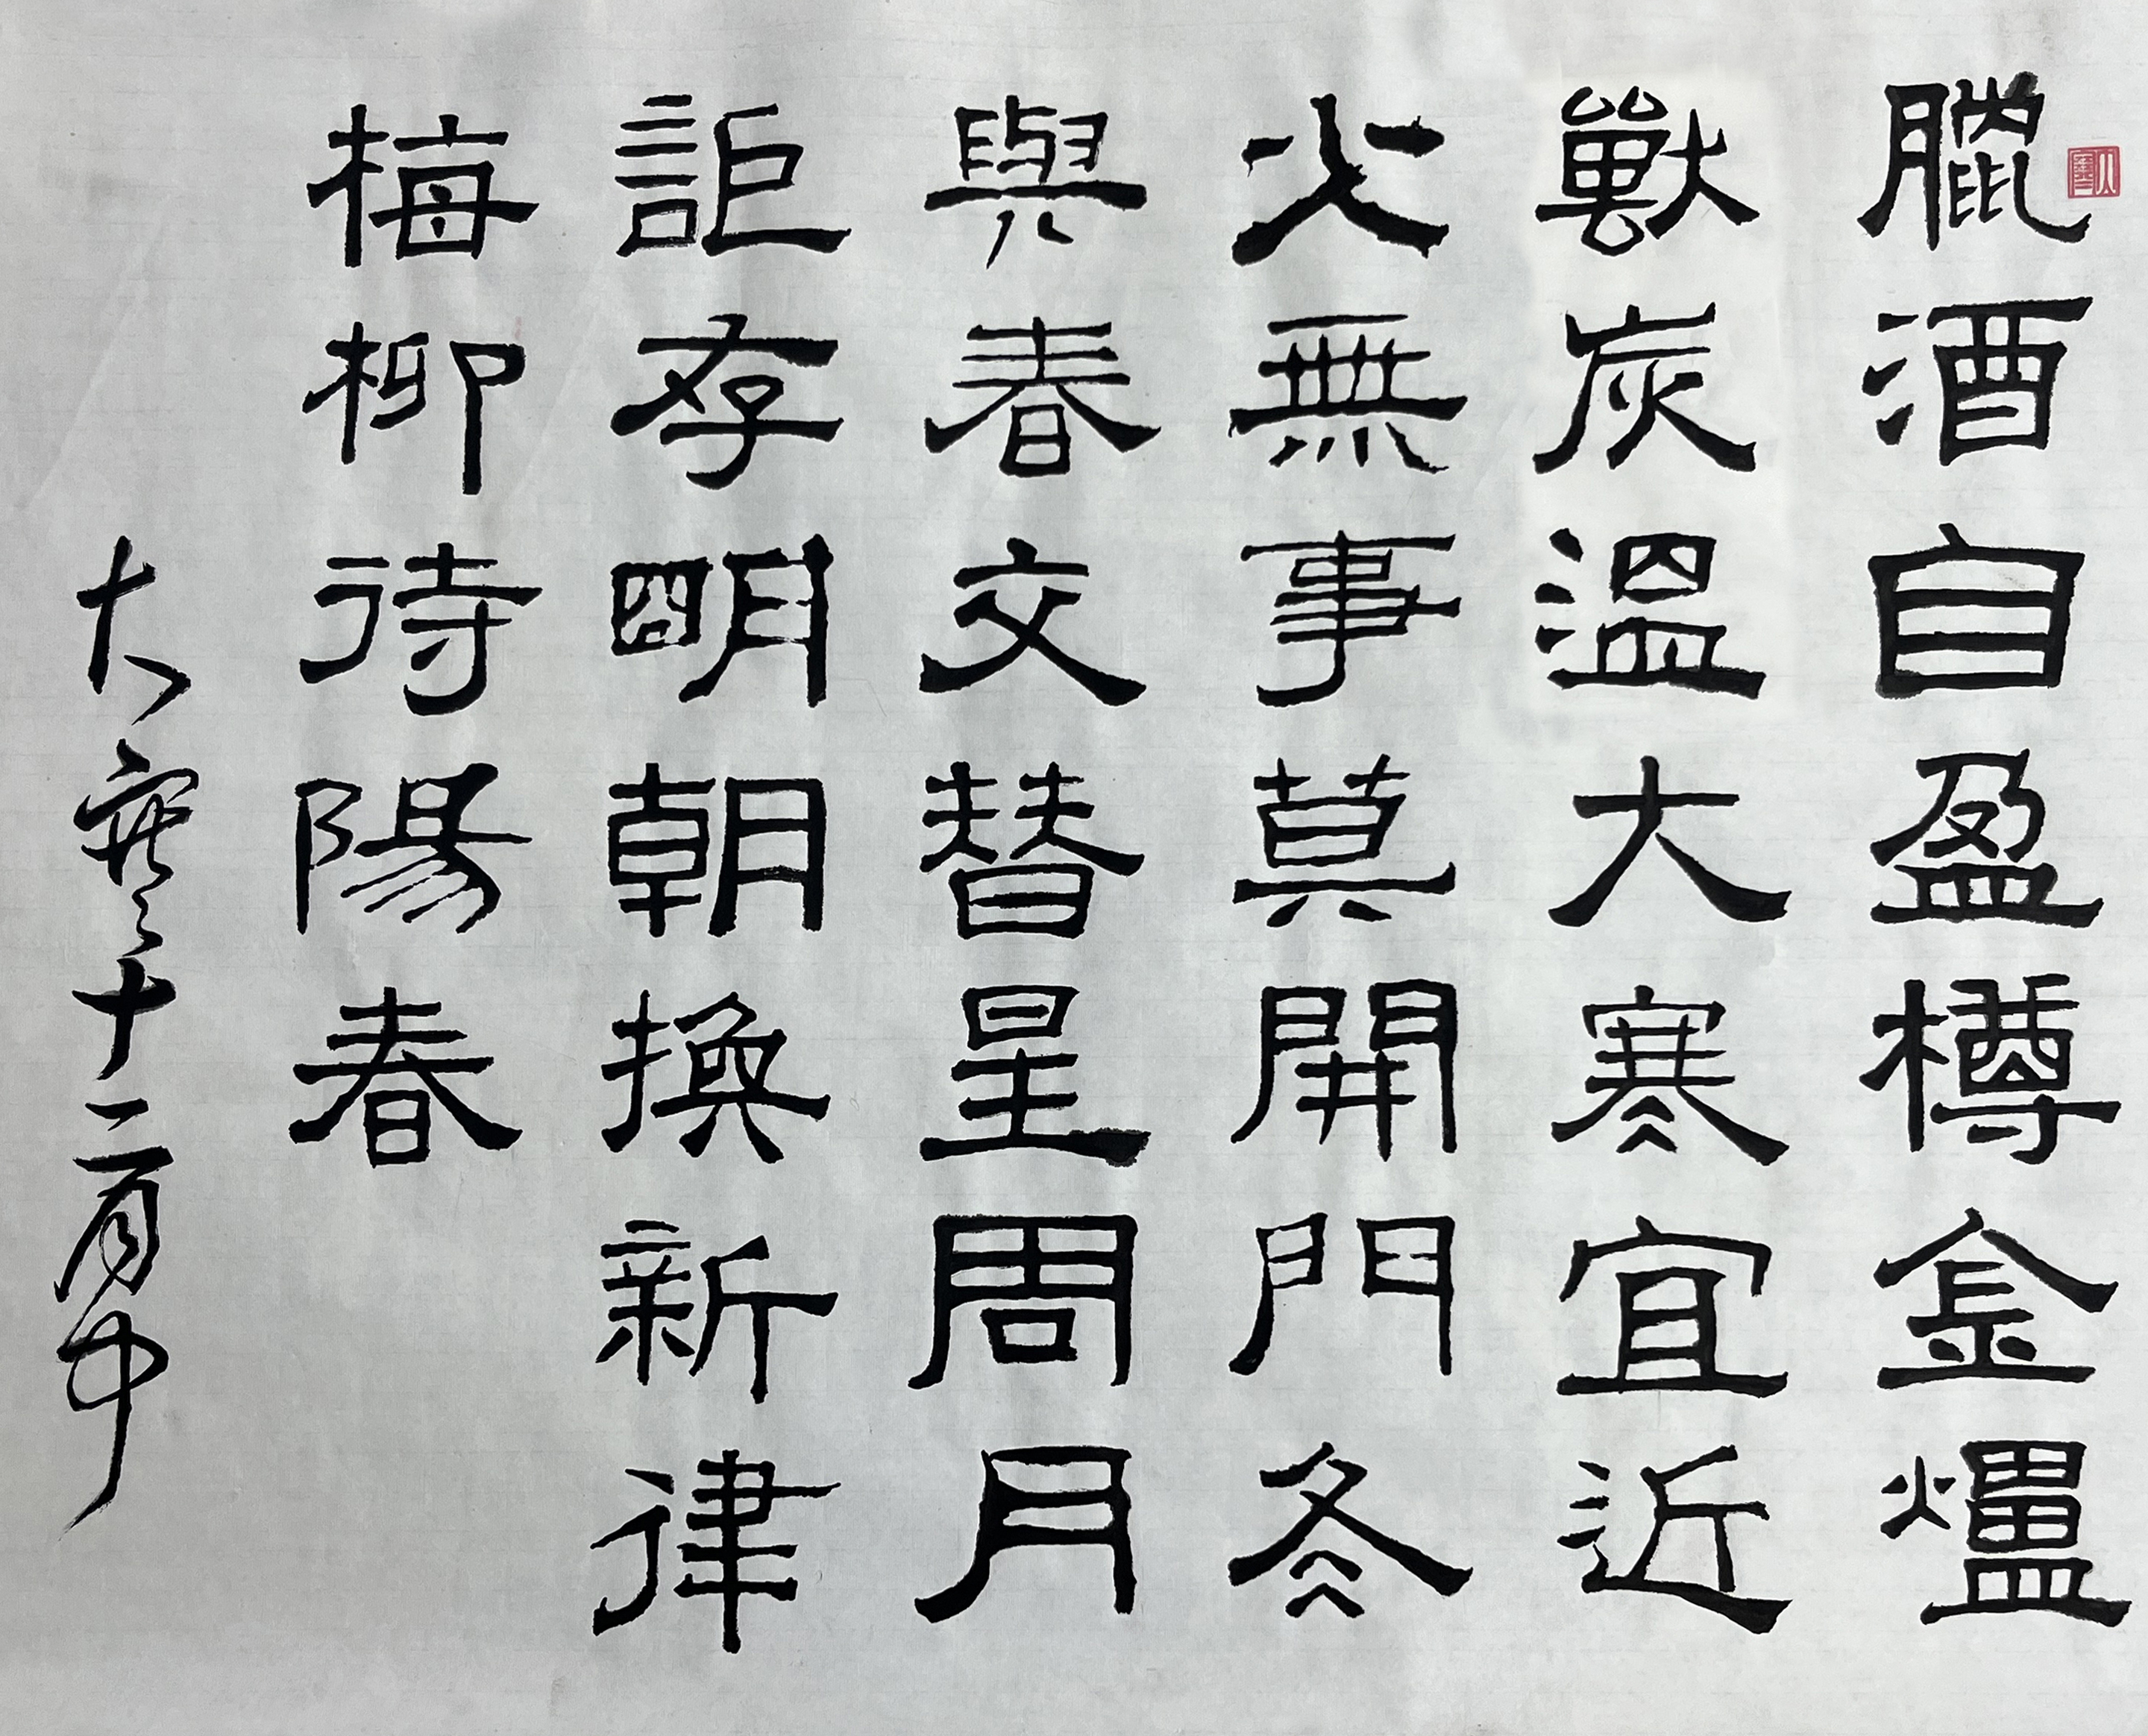 臘酒自盈樽金爐
獸炭溫大寒宜近
火無事莫開門冬
與春交替星周月
詎存明朝換新律
梅柳待陽春
大寒十二月中